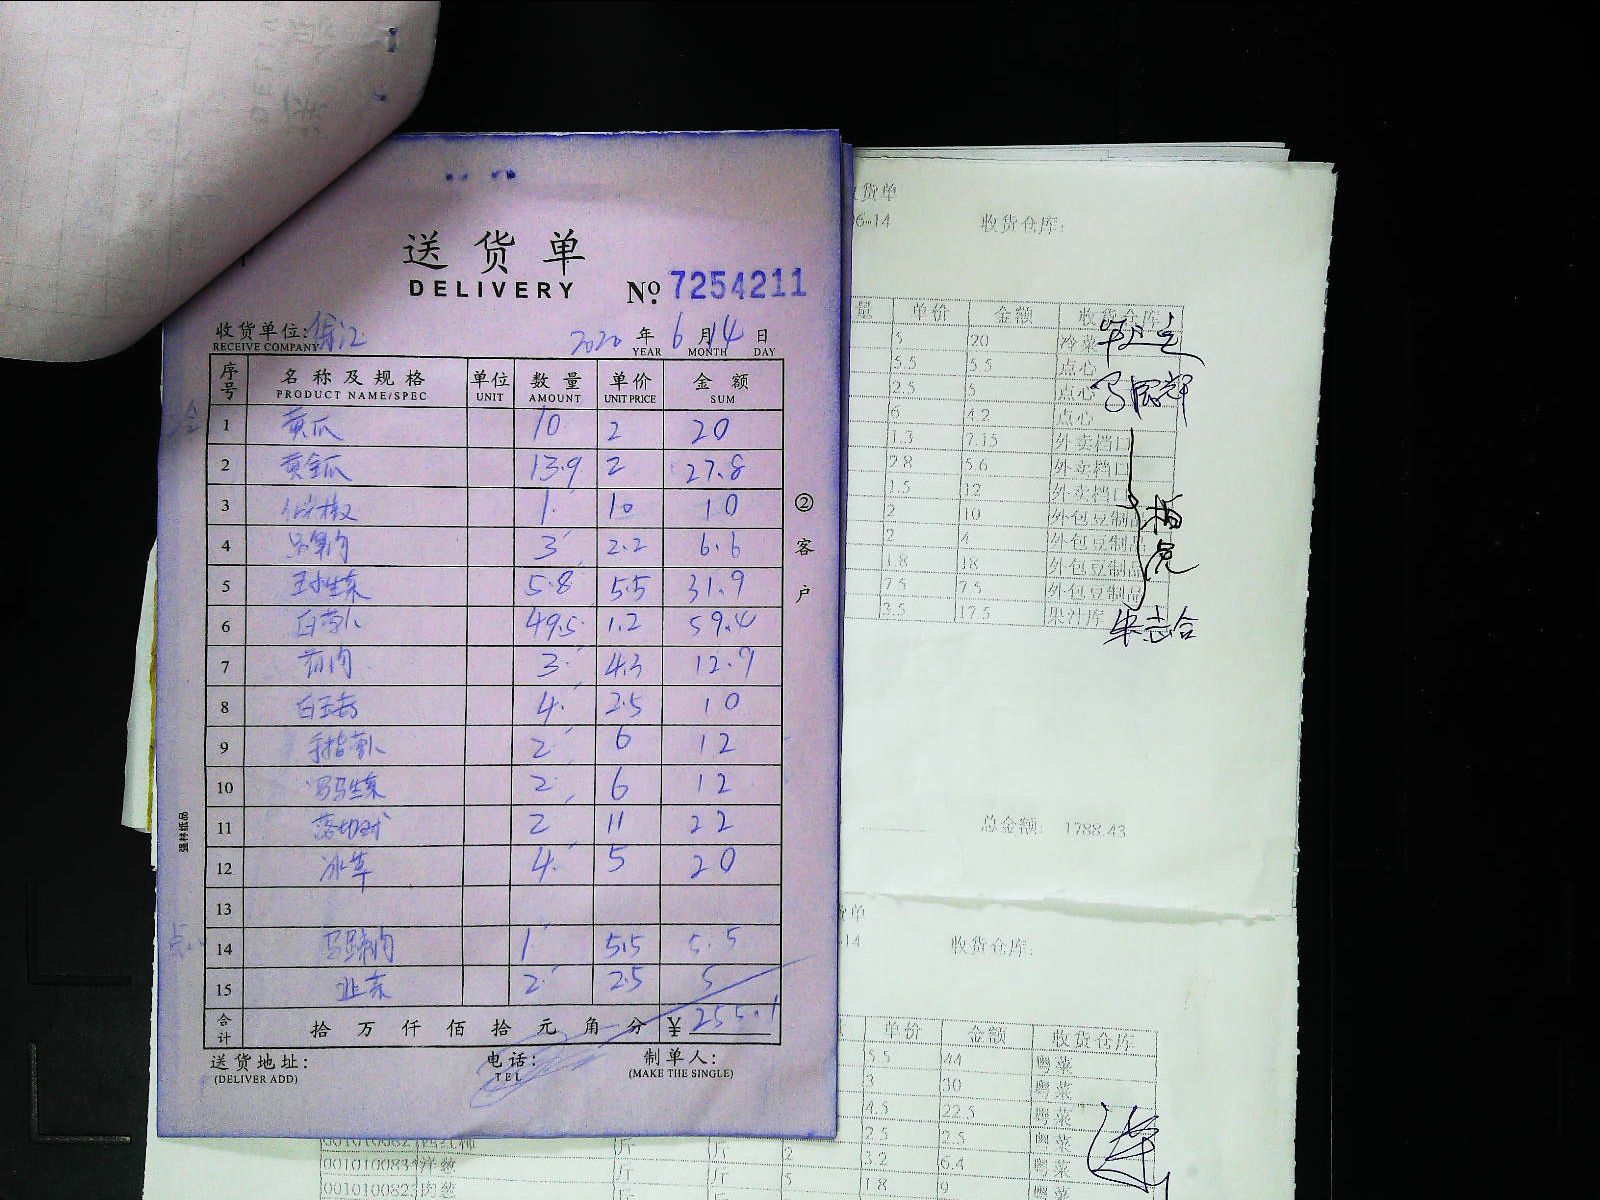 送货单
DELIVERY
No 7254211
收货单位: 徐汇 2020 年 6 月 14 日
RECEIVE COMPANY YEAR MONTH DAY
序号 名称及规格 单位 数量 单价 金额
PRODUCT NAME/SPEC UNIT AMOUNT UNIT PRICE SUM
1 黄瓜 10 2 20
2 黄金瓜 13.9 2 27.8
3 1 10 10
4 3 2.2 6.6
5 5.8 5.5 31.9
6 白萝卜 49.5 1.2 59.4
7 3 4.3 12.9
8 4 2.5 10
9 手指萝卜 2 6 12
10 罗马生菜 2 6 12
11 2 11 22
12 冰草 4 5 20
13
14 马蹄肉 1 5.5 5.5
15 韭菜 2 2.5 5
合计 拾 万 仟 佰 拾 元 角 分 ¥ 255.1
送货地址: 电话: 制单人:
(DELIVER ADD) TEL (MAKE THE SINGLE)
②客户
强林纸品
货单
06-14 收货仓库:
量 单价 金额 收货仓库
5 20 冷菜
5.5 5.5 点心
2.5 5 点心
6 4.2 点心
1.3 7.15 外卖档口
2.8 5.6 外卖档口
1.5 12 外卖档口
2 10 外包豆制品
2 4 外包豆制品
1.8 18 外包豆制品
7.5 7.5 外包豆制品
3.5 17.5 果汁库
朱志合
总金额: 1788.43
货单
-14 收货仓库:
单价 金额 收货仓库
5.5 44 粤菜
3 30 粤菜
4.5 22.5 粤菜
2.5 2.5 粤菜
洋葱 斤 2 3.2 6.4 粤菜
斤 5 1.8 9 粤菜